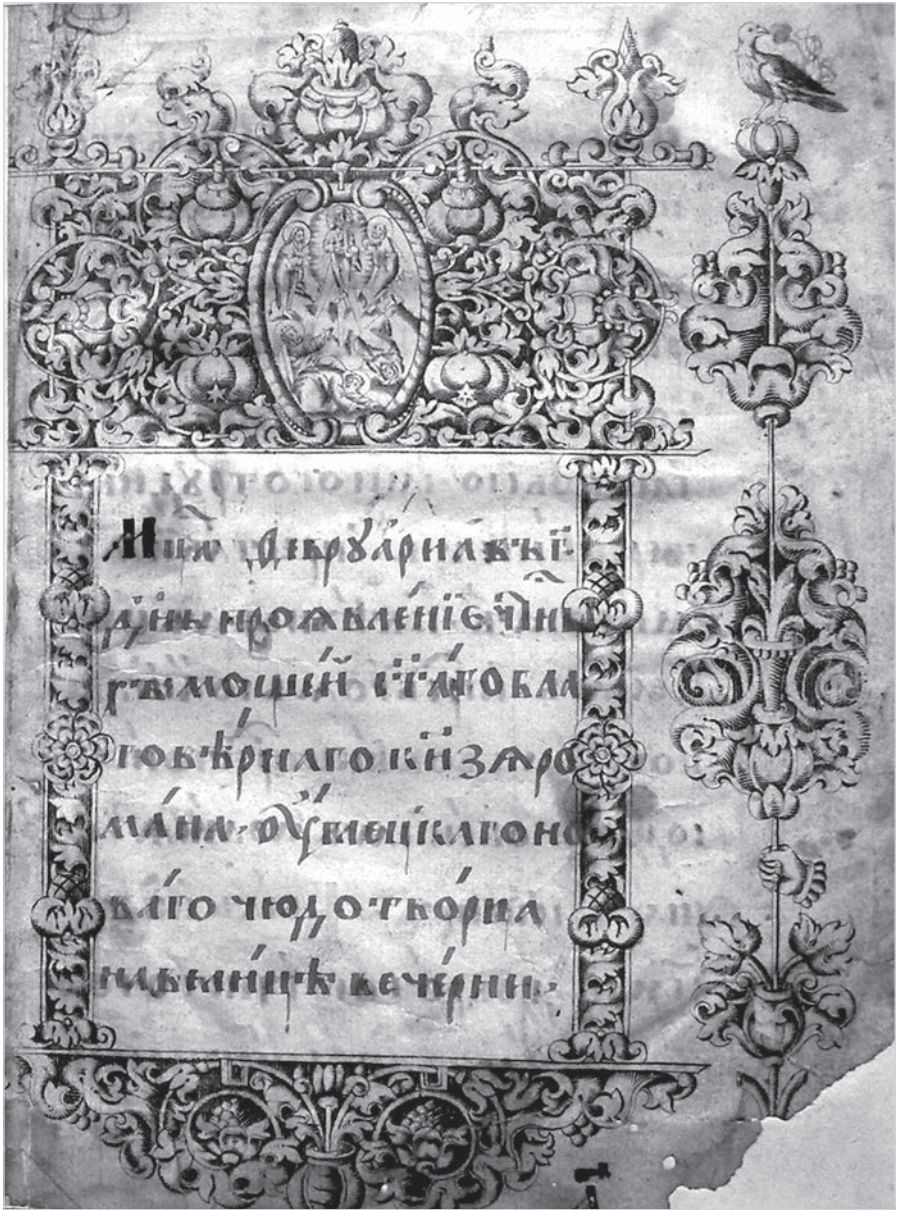 Мц҃а феврꙋа́риꙗ въ г҃
дн҃ь проѧвле́нїе ч҃тны
хъ моще́й ст҃а́го бла
говѣ́рнаго кн҃зѧ ро
ма́на ᲂу́глецкаго но
ва́го чюдотво́рца
на ве́чѣ вече́рни